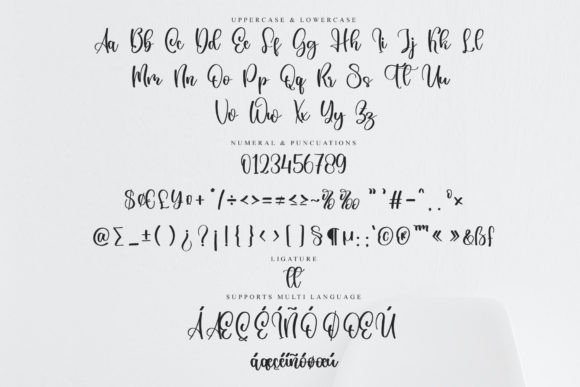 UPPERCASE & LOWERCASE
Aa Bb Cc Dd Ee Ff Gg Hh Ii Jj Kk Ll
Mm Nn Oo Pp Qq Rr Ss Tt Uu
Vv Ww Xx Yy Zz
NUMERAL & PUNCUATIONS
0123456789
$¢€£¥¤+°/÷<>=≠≤≥~%‰"'#-^..º×
@∑_±()¿?¡!{}‹›[]§¶µ:;'©®™«»&ßf
LIGATURE
tt
SUPPORTS MULTI LANGUAGE
ÁÆÇÉÍÑÓØŒÚ
áæçéíñóøœú